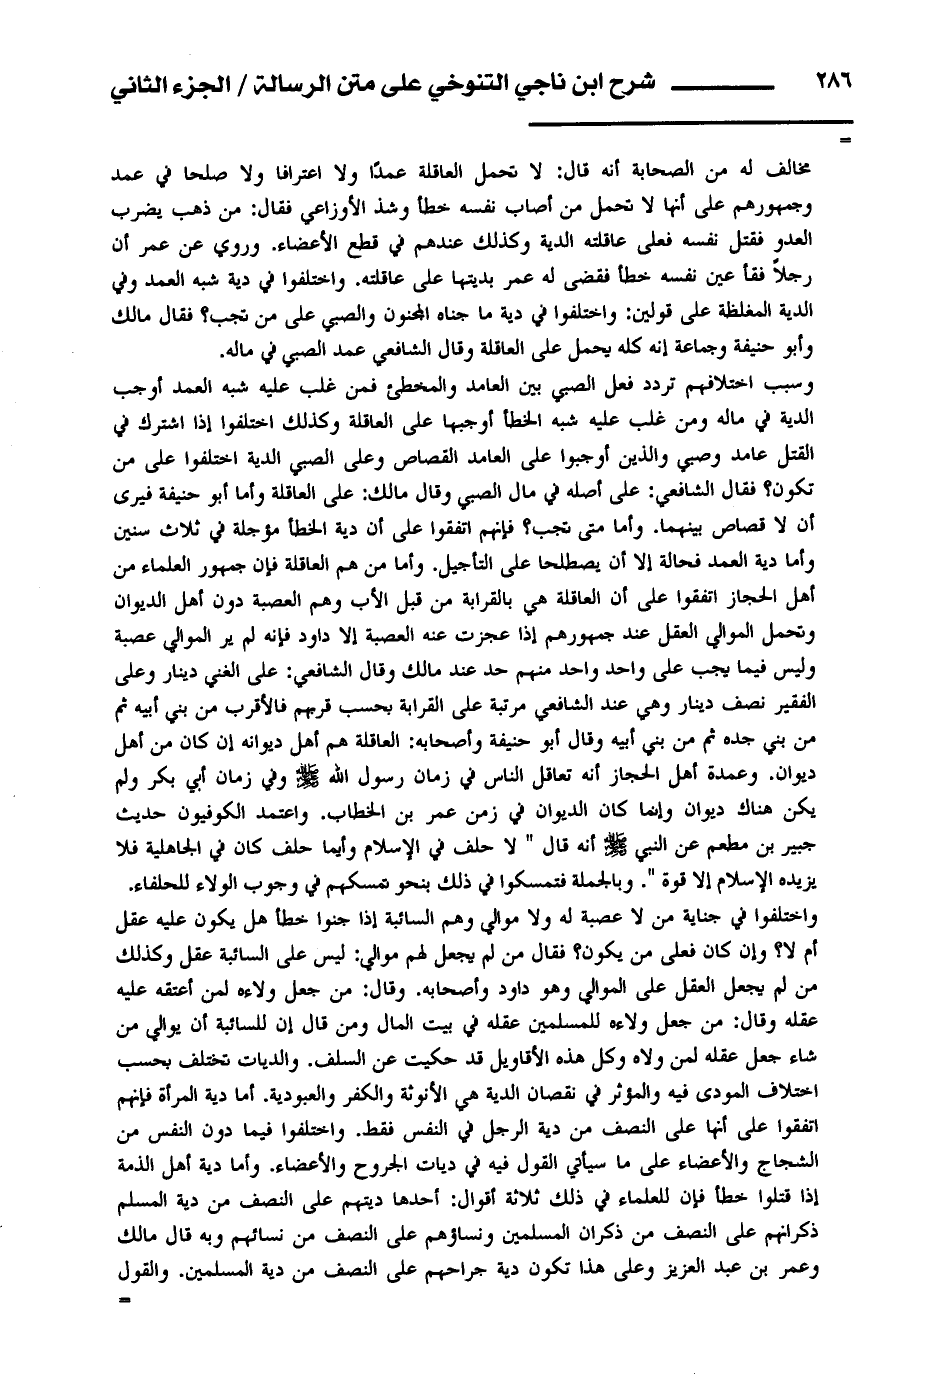 ٢٨٦ ـــــــــ شرح ابن ناجي التنوخي على متن الرسالة / الجزء الثاني
=
مخالف له من الصحابة أنه قال: لا تحمل العاقلة عمدًا ولا اعترافا ولا صلحا في عمد
وجمهورهم على أنها لا تحمل من أصاب نفسه خطأ وشذ الأوزاعي فقال: من ذهب يضرب
العدو فقتل نفسه فعلى عاقلته الدية وكذلك عندهم في قطع الأعضاء. وروي عن عمر أن
رجلاً فقأ عين نفسه خطأ فقضى له عمر بديتها على عاقلته. واختلفوا في دية شبه العمد وفي
الدية المغلظة على قولين: واختلفوا في دية ما جناه المجنون والصبي على من تجب؟ فقال مالك
وأبو حنيفة وجماعة إنه كله يحمل على العاقلة وقال الشافعي عمد الصبي في ماله.
وسبب اختلافهم تردد فعل الصبي بين العامد والمخطئ فمن غلب عليه شبه العمد أوجب
الدية في ماله ومن غلب عليه شبه الخطأ أوجبها على العاقلة وكذلك اختلفوا إذا اشترك في
القتل عامد وصبي والذين أوجبوا على العامد القصاص وعلى الصبي الدية اختلفوا على من
تكون؟ فقال الشافعي: على أصله في مال الصبي وقال مالك: على العاقلة وأما أبو حنيفة فيرى
أن لا قصاص بينهما. وأما متى تجب؟ فإنهم اتفقوا على أن دية الخطأ مؤجلة في ثلاث سنين
وأما دية العمد فحالة إلا أن يصطلحا على التأجيل. وأما من هم العاقلة فإن جمهور العلماء من
أهل الحجاز اتفقوا على أن العاقلة هي بالقرابة من قبل الأب وهم العصبة دون أهل الديوان
وتحمل الموالي العقل عند جمهورهم إذا عجزت عنه العصبة إلا داود فإنه لم ير الموالي عصبة
وليس فيما يجب على واحد واحد منهم حد عند مالك وقال الشافعي: على الغني دينار وعلى
الفقير نصف دينار وهي عند الشافعي مرتبة على القرابة بحسب قربهم فالأقرب من بني أبيه ثم
من بني جده ثم من بني أبيه وقال أبو حنيفة وأصحابه: العاقلة هم أهل ديوانه إن كان من أهل
ديوان. وعمدة أهل الحجاز أنه تعاقل الناس في زمان رسول الله ﷺ وفي زمان أبي بكر ولم
يكن هناك ديوان وإنما كان الديوان في زمن عمر بن الخطاب. واعتمد الكوفيون حديث
جبير بن مطعم عن النبي ﷺ أنه قال " لا حلف في الإسلام وأيما حلف كان في الجاهلية فلا
يزيده الإسلام إلا قوة ". وبالجملة فتمسكوا في ذلك بنحو تمسكهم في وجوب الولاء للحلفاء.
واختلفوا في جناية من لا عصبة له ولا موالي وهم السائبة إذا جنوا خطأ هل يكون عليه عقل
أم لا؟ وإن كان فعلى من يكون؟ فقال من لم يجعل لهم موالي: ليس على السائبة عقل وكذلك
من لم يجعل العقل على الموالي وهو داود وأصحابه. وقال: من جعل ولاءه لمن أعتقه عليه
عقله وقال: من جعل ولاءه للمسلمين عقله في بيت المال ومن قال إن للسائبة أن يوالي من
شاء جعل عقله لمن ولاه وكل هذه الأقاويل قد حكيت عن السلف. والديات تختلف بحسب
اختلاف المودى فيه والمؤثر في نقصان الدية هي الأنوثة والكفر والعبودية. أما دية المرأة فإنهم
اتفقوا على أنها على النصف من دية الرجل في النفس فقط. واختلفوا فيما دون النفس من
الشجاج والأعضاء على ما سيأتي القول فيه في ديات الجروح والأعضاء. وأما دية أهل الذمة
إذا قتلوا خطأ فإن للعلماء في ذلك ثلاثة أقوال: أحدها ديتهم على النصف من دية المسلم
ذكرانهم على النصف من ذكران المسلمين ونساؤهم على النصف من نسائهم وبه قال مالك
وعمر بن عبد العزيز وعلى هذا تكون دية جراحهم على النصف من دية المسلمين. والقول
=